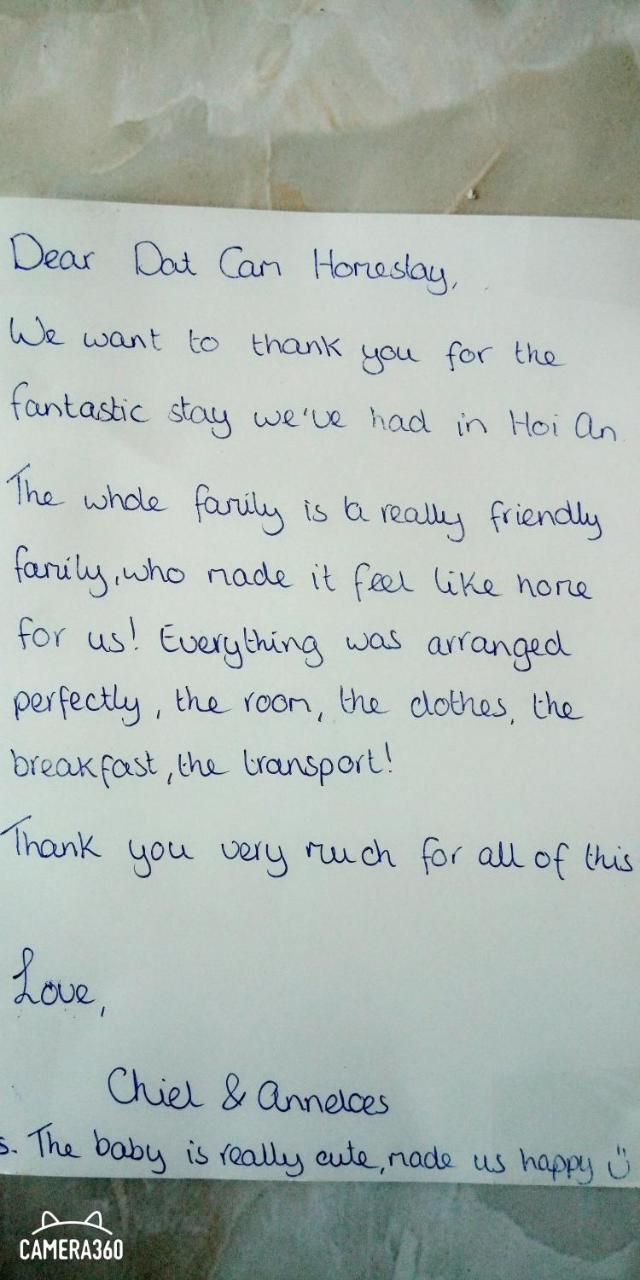 Dear Dat Cam Homestay,
We want to thank you for the
fantastic stay we've had in Hoi An
The whole family is a really friendly
family, who made it feel like home
for us! Everything was arranged
perfectly, the room, the clothes, the
breakfast, the transport!
Thank you very much for all of this
Love,
Chiel & Anneloes
s. The baby is really cute, made us happy ü
CAMERA360